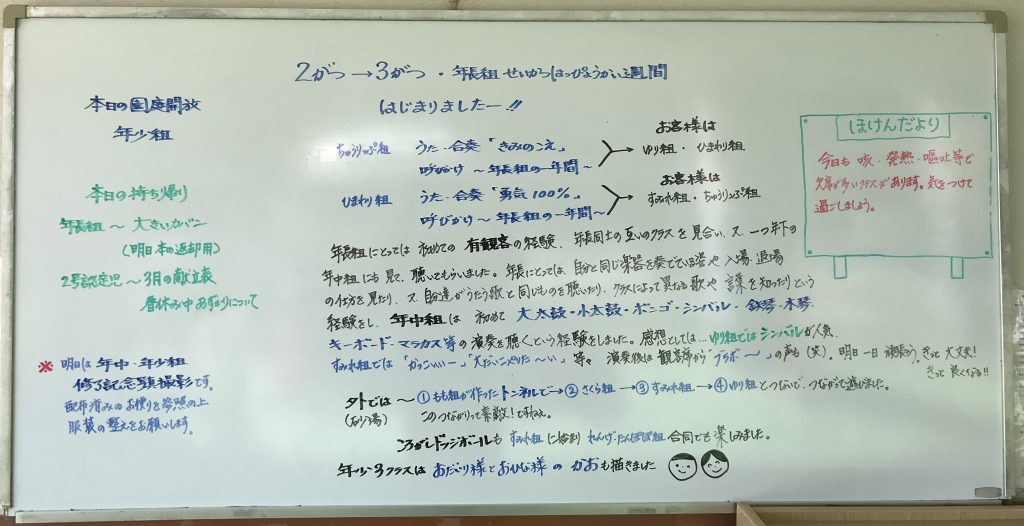 2がつ→3がつ・年長組せいかつはっぴょうかい週間
はじまりましたー!!
本日の園庭開放
年少組
本日の持ち帰り
年長組～大きいカバン
(明日本の返却用)
2号認定児～3月の献立表
春休み中あずかりについて
※明日は年中・年少組
修了記念写真撮影です。
配布済みのお便りを参照の上
服装の整えをお願いします。
ちゅうりっぷ組 うた・合奏「きみのこえ」
呼びかけ～年長組の一年間～
お客様は
ゆり組・ひまわり組
ひまわり組 うた・合奏「勇気100%」
呼びかけ～年長組の一年間～
お客様は
すみれ組・ちゅうりっぷ組
年長組にとっては初めての有観客の経験、年長同士の互いのクラスを見合い、又、一つ年下の
年中組にも見て、聴いてもらいました。年長にとっては、自分と同じ楽器を奏でている姿や入場、退場
の仕方を見たり、又自分達がうたう歌と同じものを聴いたり、クラスによって異なる歌や言葉を知ったりという
経験をし、年中組は初めて大太鼓・小太鼓・ボンゴ・シンバル・鉄琴・木琴・
キーボード・マラカス等の演奏を聴くという経験をしました。感想としては…ゆり組ではシンバルが人気、
すみれ組では「かっこいいー」「大だいこやりた～い」等々 演奏後は観客席から"ブラボ～"の声も(笑)。明日一日頑張ろう。きっと大丈夫!
きっと良くなる!!
外では～①もも組が作ったトンネルで→②さくら組→③すみれ組→④ゆり組とつないで、つながって遊びました。
(お砂場) このつながりって素敵!ですねぇ。
ころがしドッジボールもすみれ組に始まりれんげ・たんぽぽ組合同でも楽しみました。
年少3クラスはおだいり様とおひな様のかおも描きました
ほけんだより
今日も咳・発熱・嘔吐等で
欠席が多いクラスがあります。気をつけて
過ごしましょう。